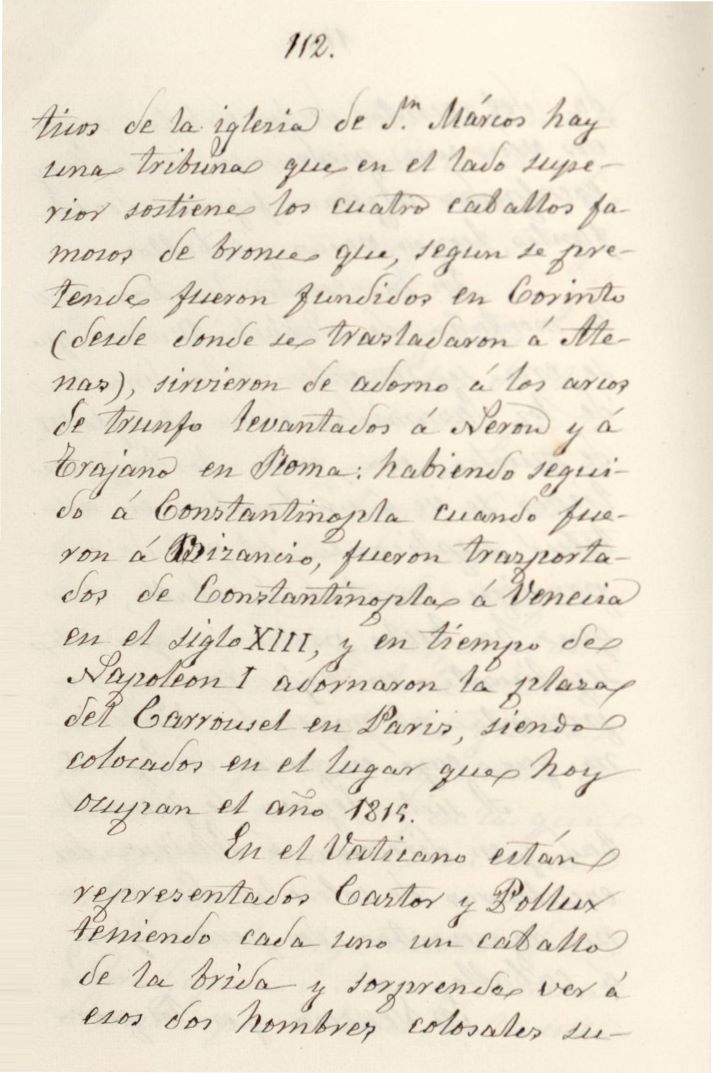 112.
ticos de la iglesia de Sn. Márcos hay
una tribuna que en el lado supe-
rior sostiene los cuatro caballos fa-
mosos de bronce que, segun se pre-
tende fueron fundidos en Corinto
(desde donde se trasladaron á Ate-
nas), sirvieron de adorno á los arcos
de triunfo levantados á Neron y á
Trajano en Roma: habiendo segui-
do á Constantinopla cuando fue-
ron á Bizancio, fueron trasporta-
dos de Constantinopla á Venecia
en el siglo XIII, y en tiempo de
Napoleon I adornaron la plaza
del Carrousel en Paris, siendo
colocados en el lugar que hoy
ocupan el año 1815.
En el Vaticano están
representados Castor y Pollux
teniendo cada uno un caballo
de la brida y sorprende ver á
esos dos hombres colosales su-